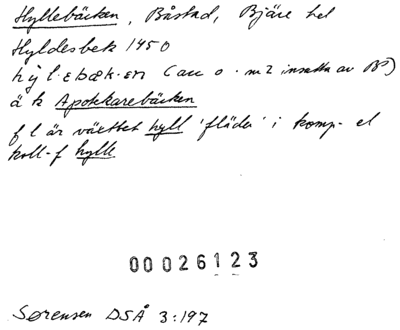 Hyllebäcken, Båstad, Bjäre hd
Hyldesbek 1450
hyl·ebæk·en (acc o · m2 insatta av BP)
äk Apotekarebäcken
f l är växttet hyll 'fläder' i komp- el
koll-f hylle
00026123
Sørensen DSÅ 3:197